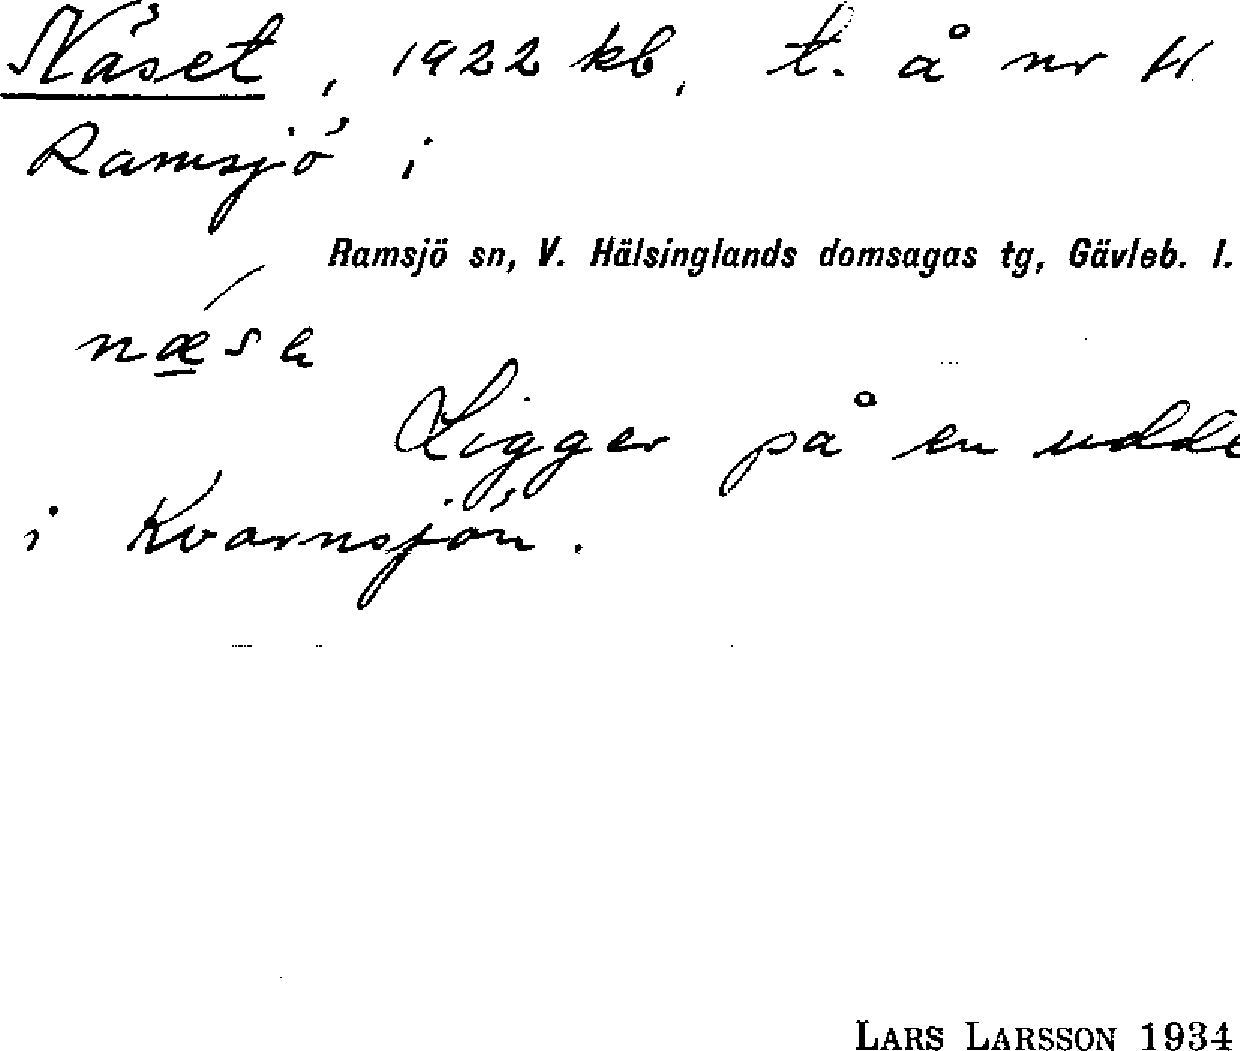 Näset, 1922 kb, t. å nr 11
Ramsjö i
Ramsjö sn, V. Hälsinglands domsagas tg, Gävleb. l.
næsa
Ligger på en udde
i Kvarnsjön.
LARS LARSSON 1934